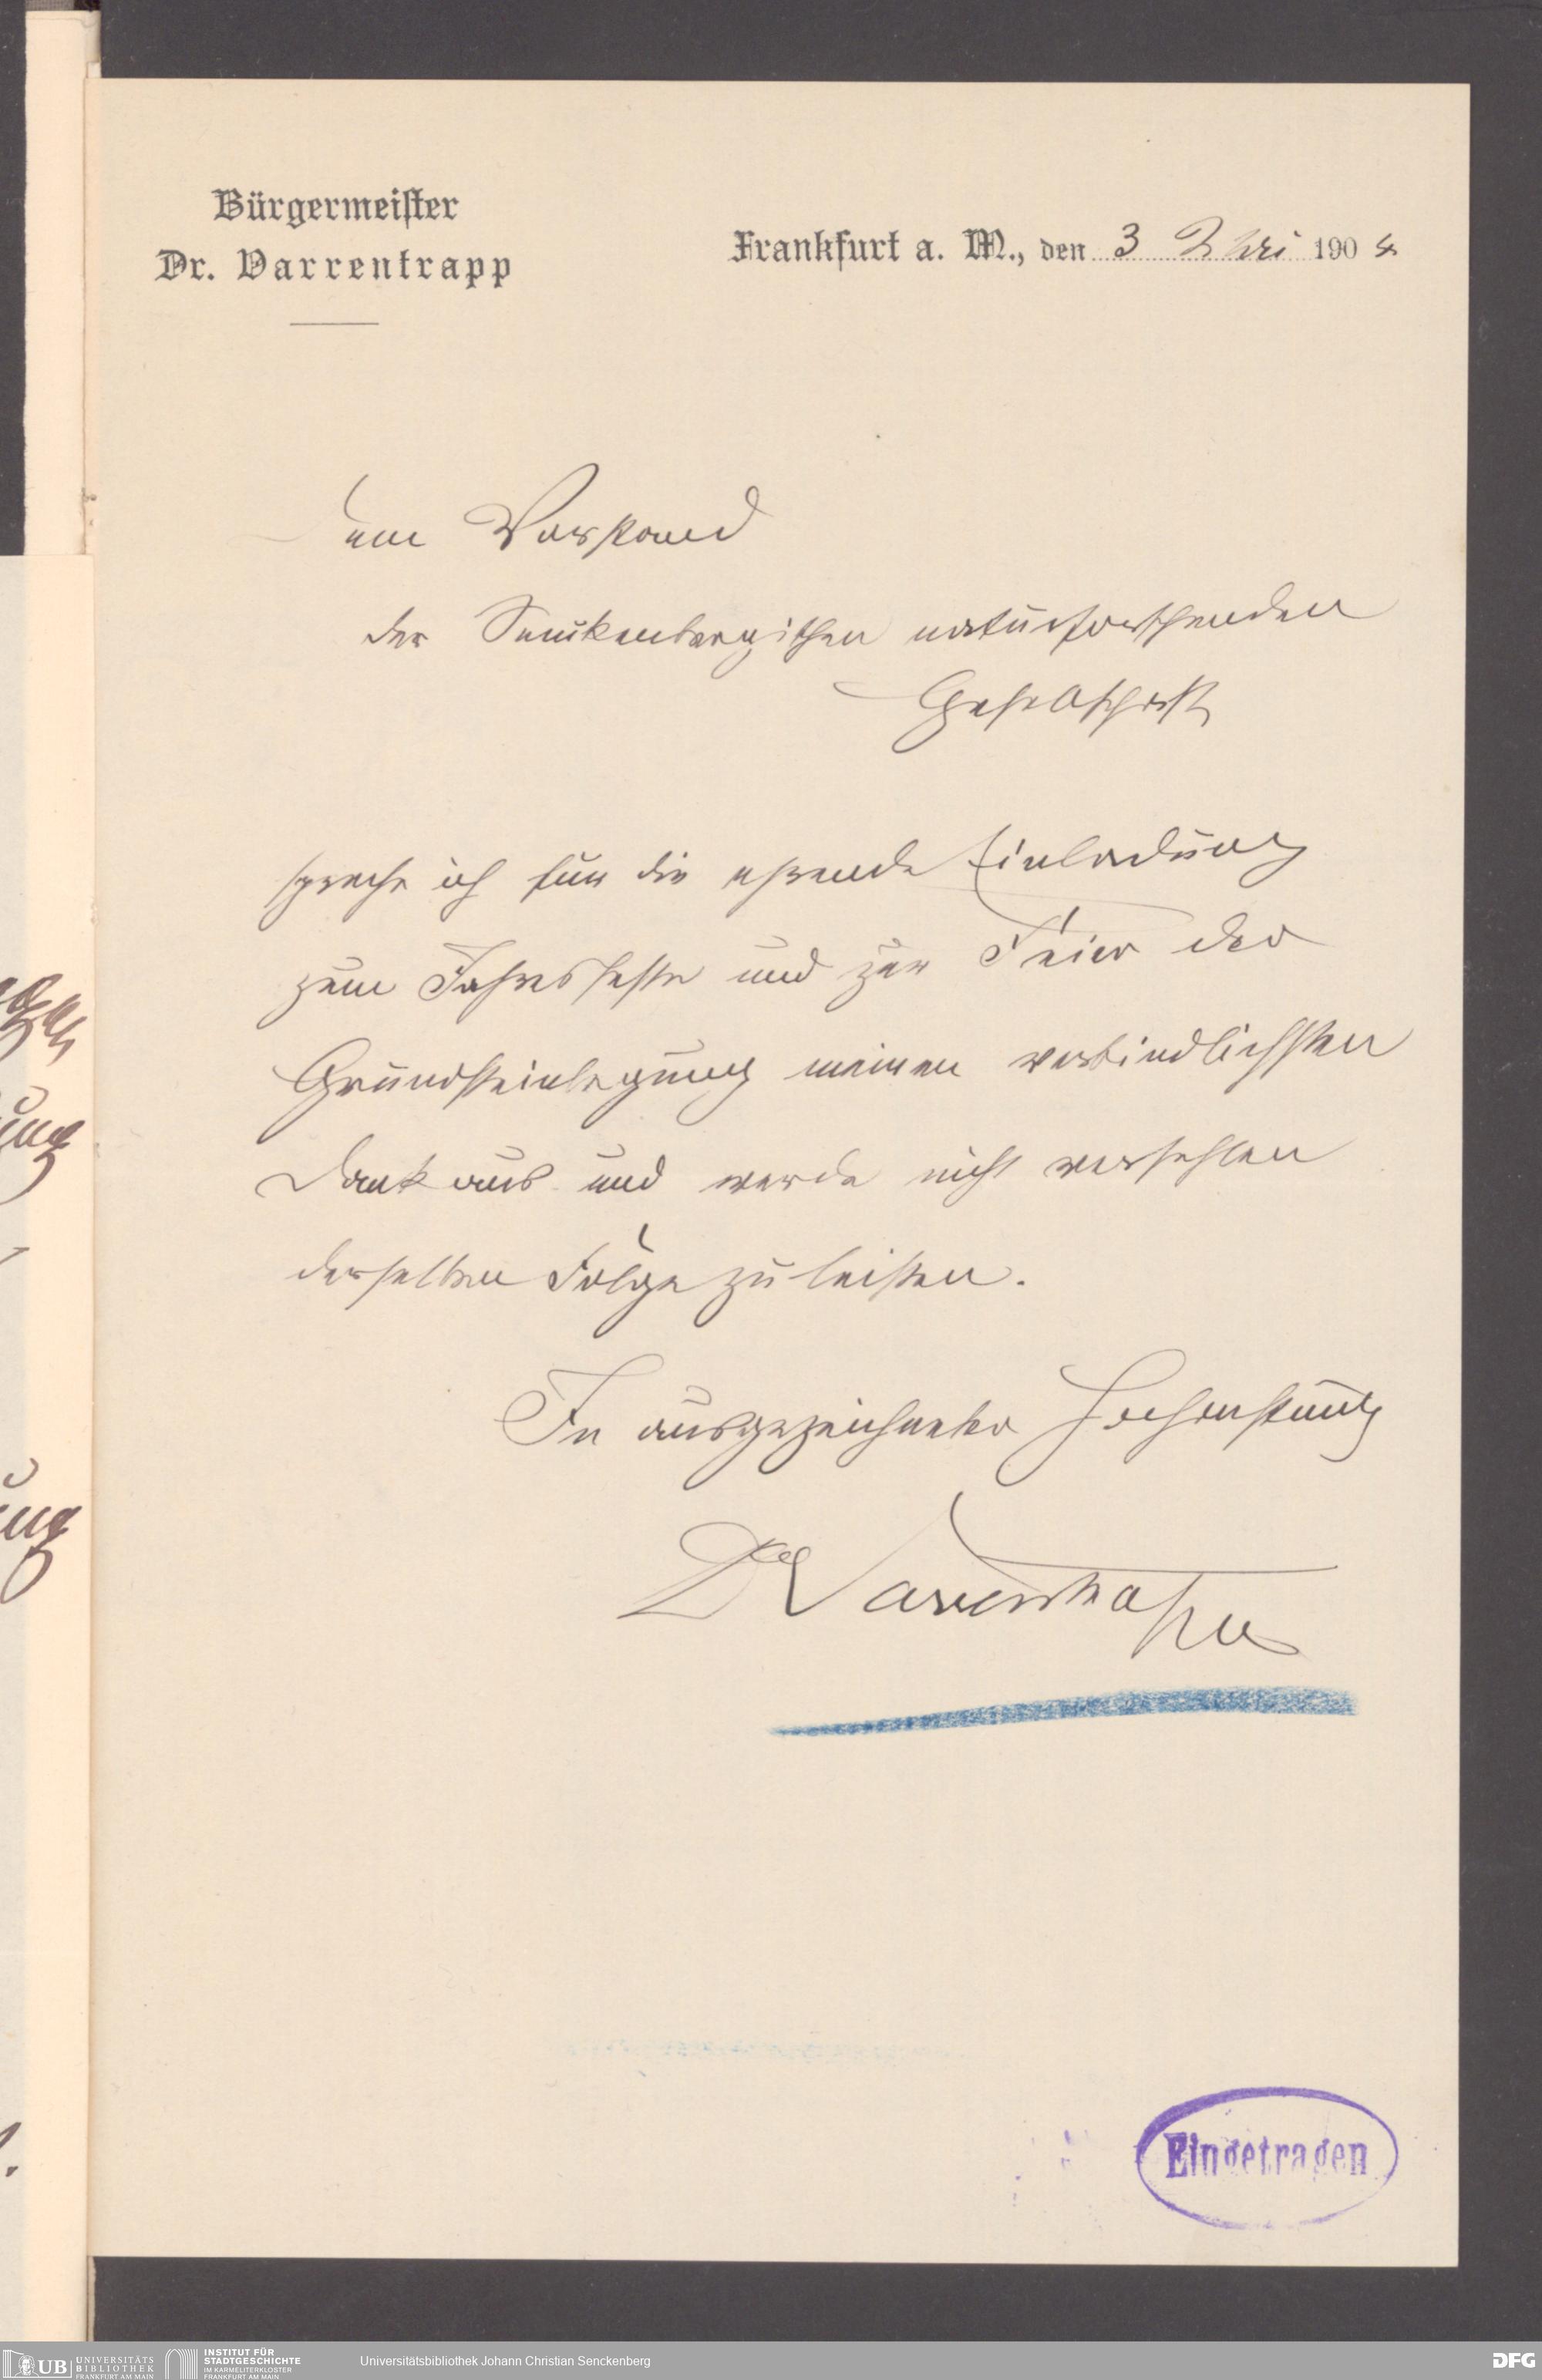 Bürgermeister
Dr. Varrentrapp
Frankfurt a. M., den 3 Mai 1904
Dem Vorstand
der Senckenbergischen naturforschenden
Gesellschaft
spreche ich für die ehrende Einladung
zum Jahresfeste und zur Feier der
Grundsteinlegung meinen verbindlichsten
Dank aus und werde nicht verfehlen
derselben Folge zu leisten.
In ausgezeichneter Hochachtung
Dr Varrentrapp
Eingetragen
UB UNIVERSITÄTS
BIBLIOTHEK
FRANKFURT AM MAIN
INSTITUT FÜR
STADTGESCHICHTE
IM KARMELITERKLOSTER
FRANKFURT AM MAIN
Universitätsbibliothek Johann Christian Senckenberg
DFG